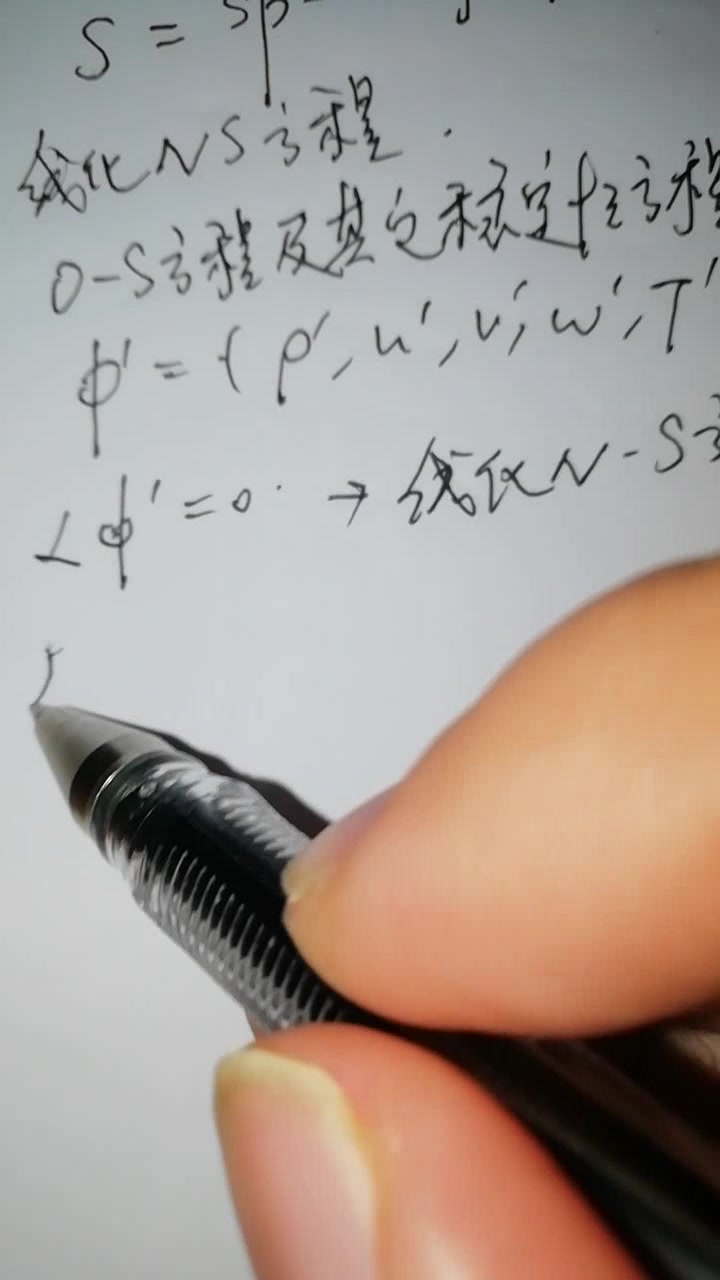 S =
线化NS方程.
O-S方程及其它稳定性方程
ϕ' = (ρ', u', v', w', T'
Lϕ' = 0. → 线化N-S